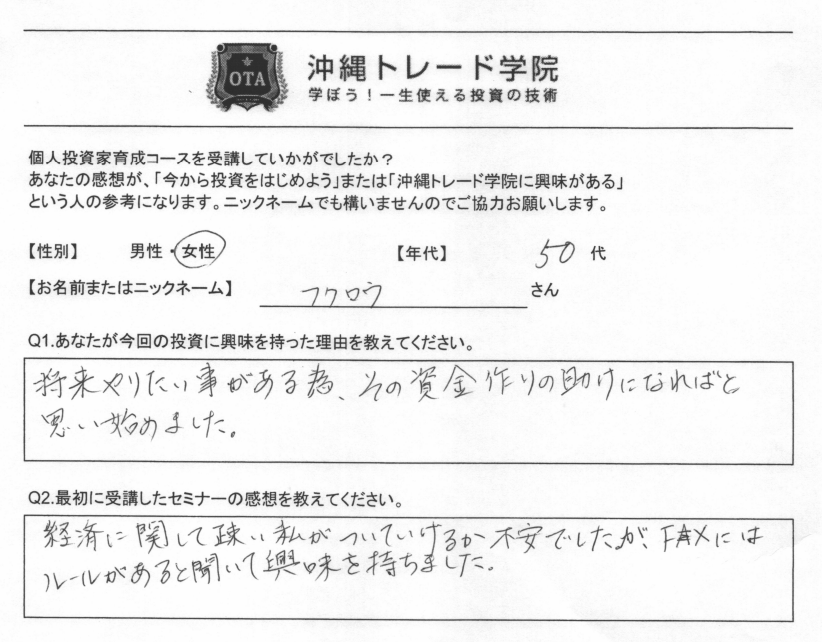 OTA
沖縄トレード学院
学ぼう！一生使える投資の技術
個人投資家育成コースを受講していかがでしたか？
あなたの感想が、「今から投資をはじめよう」または「沖縄トレード学院に興味がある」
という人の参考になります。ニックネームでも構いませんのでご協力お願いします。
【性別】 男性・女性 【年代】 50 代
【お名前またはニックネーム】 フクロウ さん
Q1.あなたが今回の投資に興味を持った理由を教えてください。
将来やりたい事がある為、その資金作りの助けになればと
思い始めました。
Q2.最初に受講したセミナーの感想を教えてください。
経済に関して疎い私がついていけるか不安でしたが、FAXには
ルールがあると聞いて興味を持ちました。